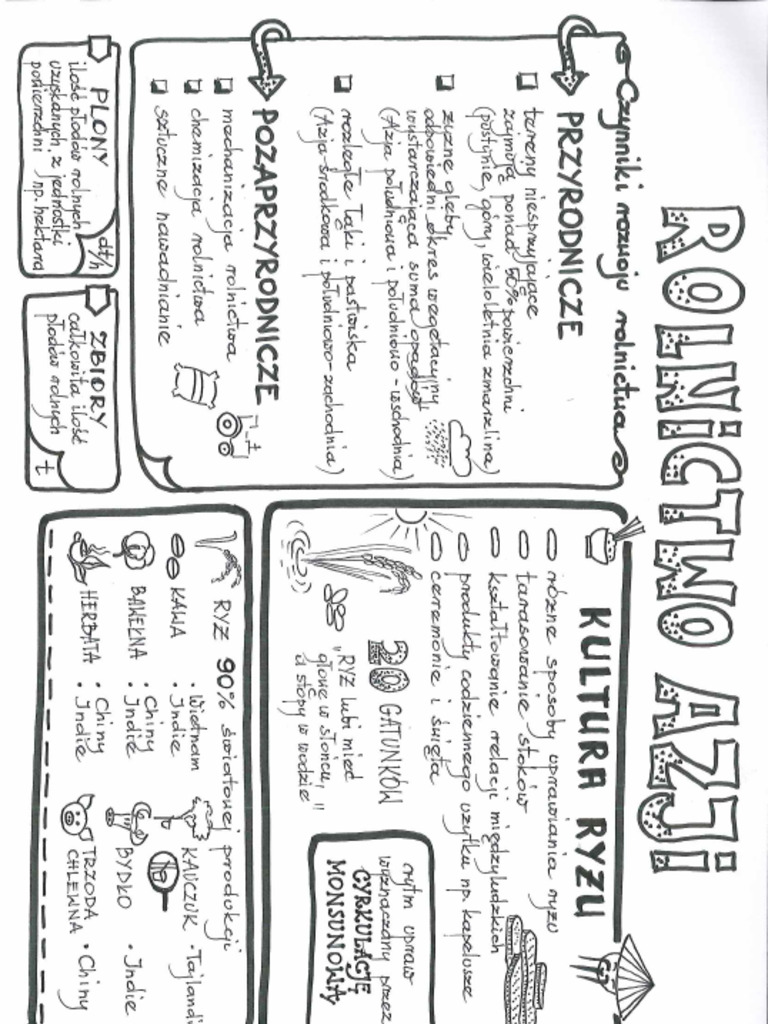 ROLNICTWO AZJI
Czynniki rozwoju rolnictwa
PRZYRODNICZE
tereny niesprzyjające
zajmują ponad 50% powierzchni
(pustynie, góry, wieloletnia zmarzlina)
żyzne gleby
odpowiedni okres wegetacyjny
wystarczająca suma opadów
(Azja południowa i południowo-wschodnia)
rozległe łąki i pastwiska
(Azja środkowa i południowo-zachodnia)
POZAPRZYRODNICZE
mechanizacja rolnictwa
chemizacja rolnictwa
sztuczne nawadnianie
PLONY
ilość płodów rolnych
uzyskanych z jednostki
powierzchni, np. hektara
dt/h
ZBIORY
całkowita ilość
płodów rolnych
t
KULTURA RYŻU
różne sposoby uprawiania ryżu
tarasowanie stoków
kształtowanie relacji międzyludzkich
produkty codziennego użytku np. kapelusze
ceremonie i święta
20 GATUNKÓW
"RYŻ lubi mieć
głowę w słońcu,
a stopy w wodzie"
rytm upraw
wyznaczany przez
CYRKULACJĘ
MONSUNOWĄ
RYŻ 90% światowej produkcji
KAWA
• Wietnam
• Indie
BAWEŁNA
• Chiny
• Indie
HERBATA
• Chiny
• Indie
KAUCZUK
• Tajlandi
BYDŁO
• Indie
TRZODA
CHLEWNA
• Chiny